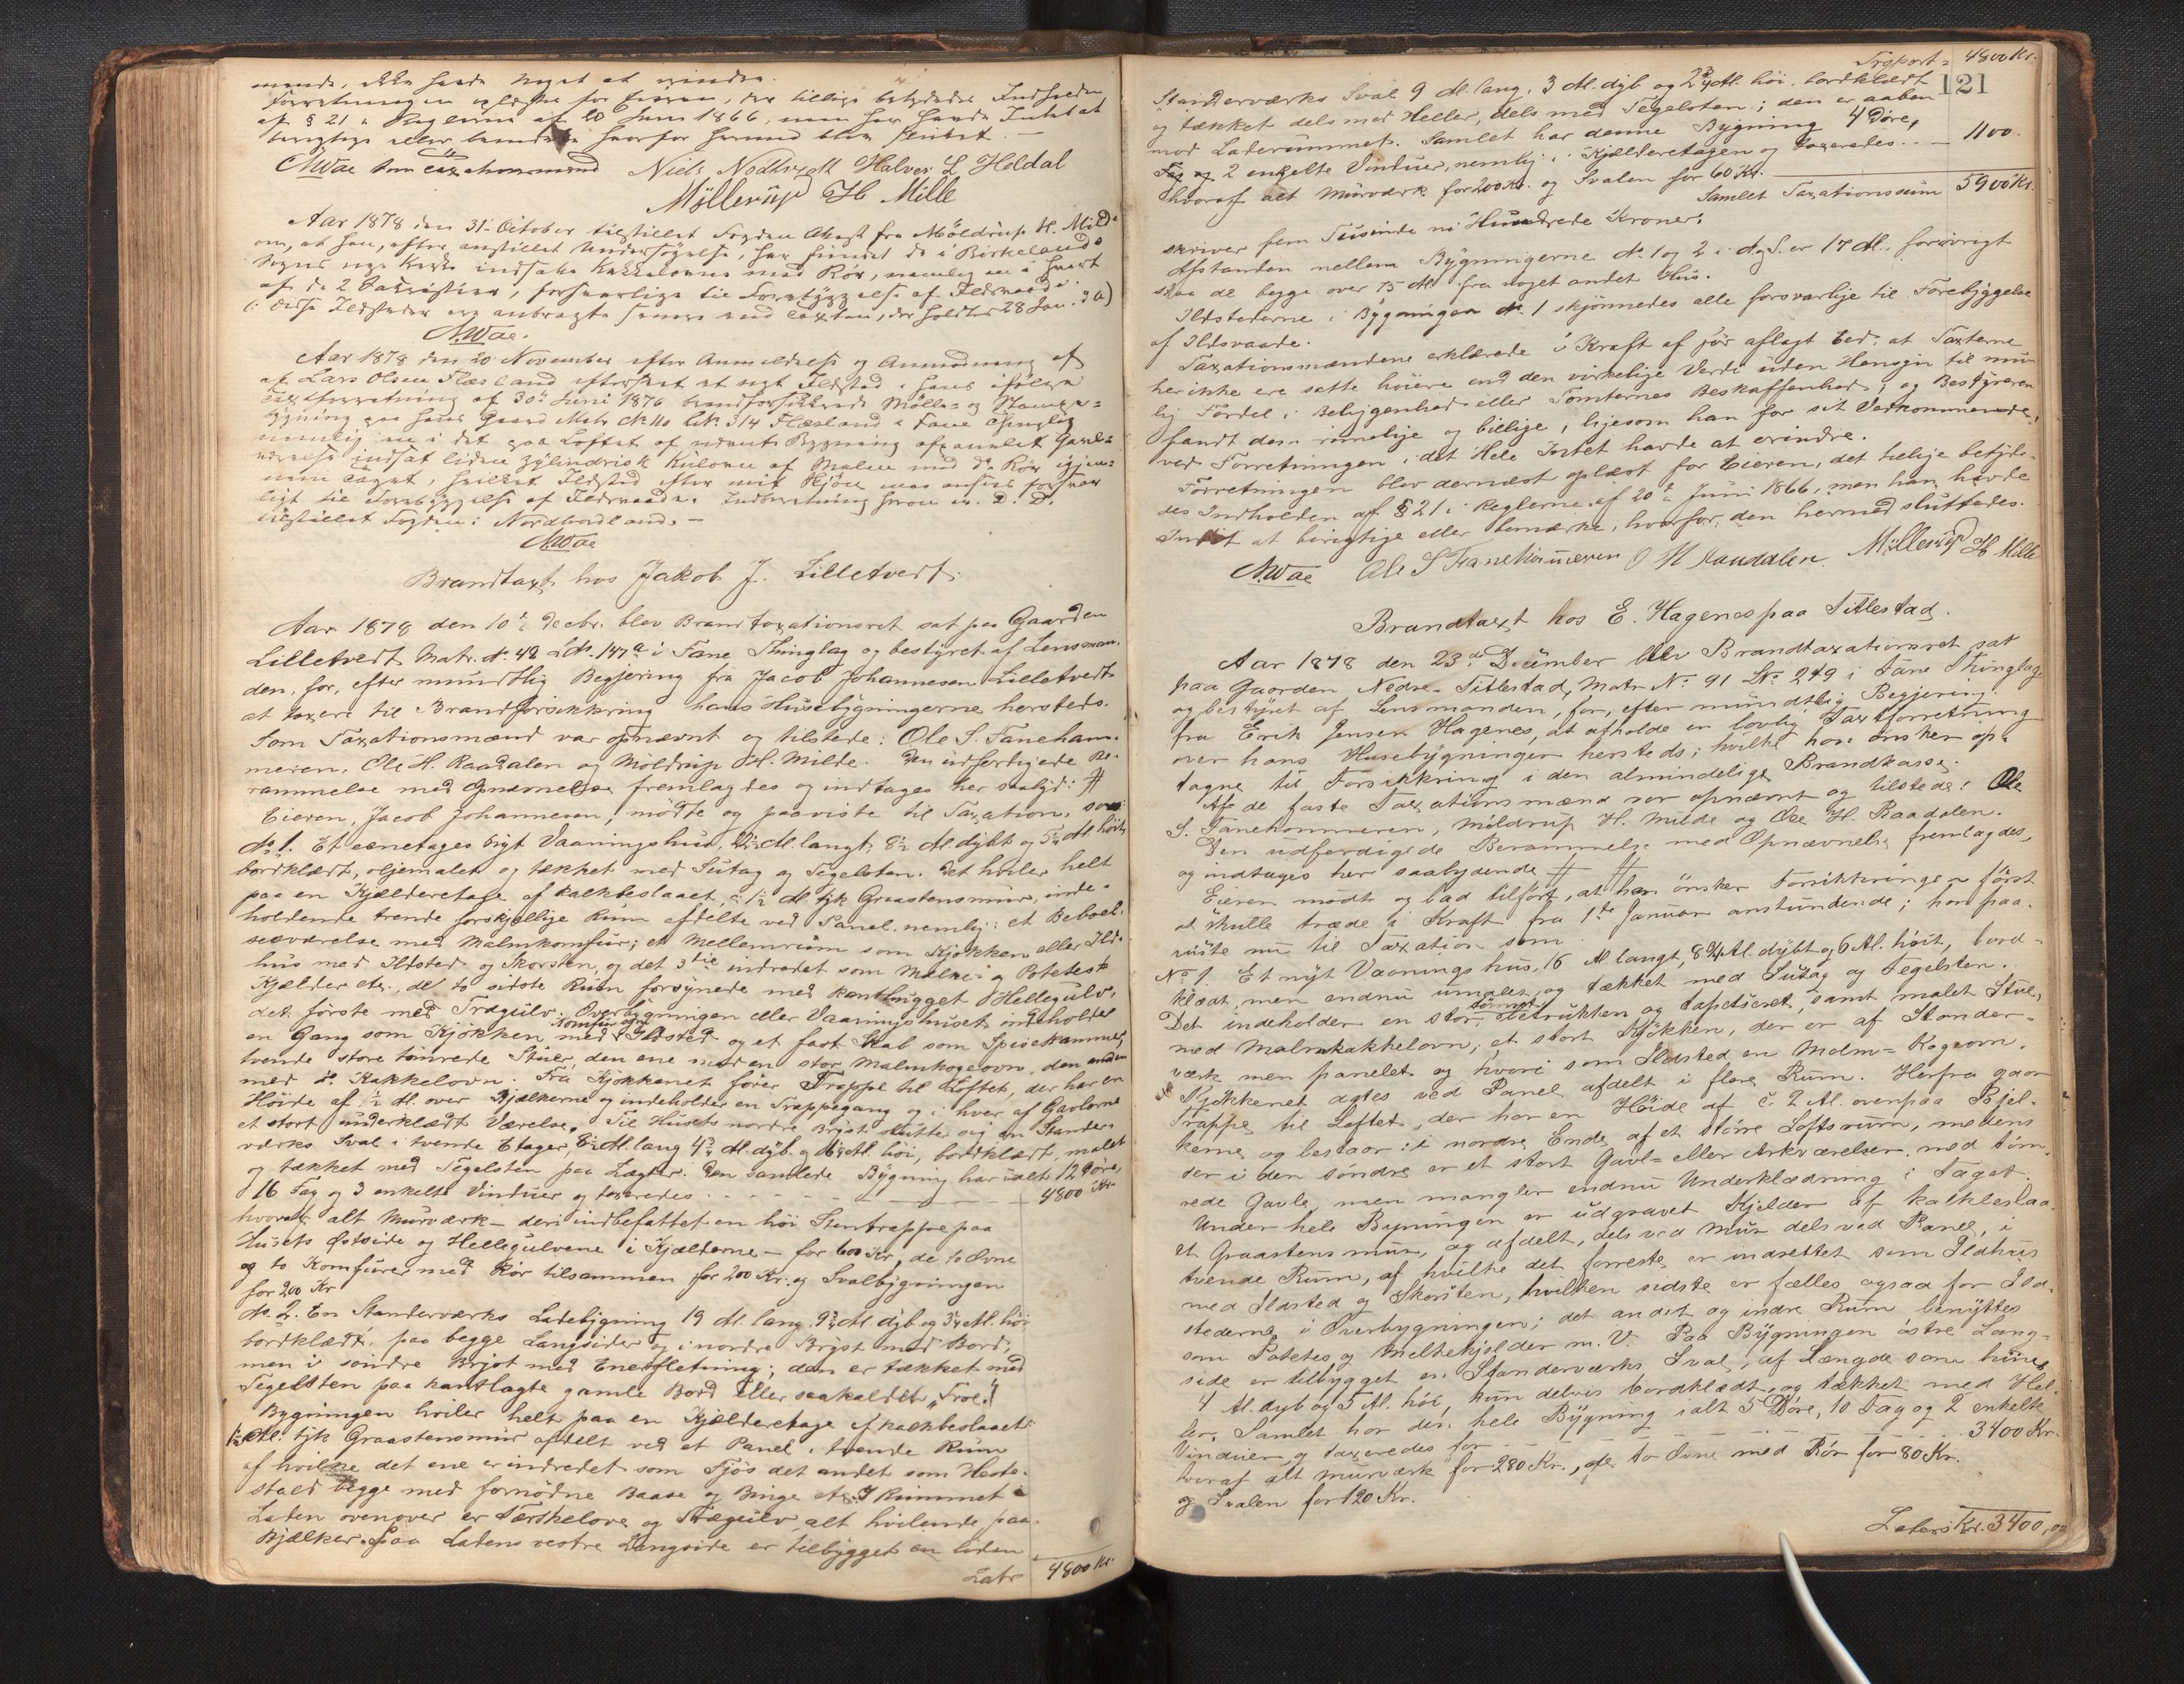 mende, ikke havde Noget at erindre.
Forretningen oplæstes for Eieren, der tillige betydedes Indholdet
af § 21 i Reglerne af 20 Juni 1866, men han havde Intet at
berigtige eller bemærke hvorfor hermed blev sluttet. —
NWae som Taxationsmænd Niels Nedtvedt Halvor L Heldal
Möllerüp H Mille
Aar 1878 den 31 October tilstillet Fogden Attest fra Möldrup H. Milde
om, at han, efter anstillet Undersögelse, har fundet de i Birkelands
Sogns nye Kirke indsatte Kakkelovne med Rör, nemlig en i hvert
af de 2 Sakristier, forsvarlige til Forebyggelse af Ildsvaade.
(: disse Ildsteder ere anbragte senere end Taxten, der holdtes 28 Jan. d. A)
NWae.
Aar 1878 den 20 November efter Anmeldelse og Anmodning af
af Lars Olsen Flæsland eftersaaet et nyt Ildsted i hans ifölge
Taxtforretning af 30te Juni 1876 brandforsikkrede Mölle- og Stampe-
bygning paa hans Gaard Matr № 110 L№ 314 Flæsland i Fane Thinglag
nemlig en i det paa Loftet af nævnte Bygning afpanelet Gavl-
værelse indsat liden zylindrisk Kulovn af Malm med do Rör igjen-
nem Taget, hvilket Ildsted efter mit Skjön maa ansees forsvar
ligt til Forebyggelse af Ildsvaade. Indberetning herom er D. D.
tilstillet Fogden i Nordhordland. —
NWae
Brandtaxt hos Jakob J. Lilletvedt.
Aar 1878 den 10de Decbr. blev Brandtaxationsret sat paa Gaarden
Lilletvedt Matr. № 42 L№. 147a i Fane Thinglag og bestyret af Lensman-
den, for, efter mundtlig Begjering fra Jacob Johannesen Lilletvedt
at taxere til Brandforsikkring hans Husebygningerne hersteds.
Som Taxationsmænd var opnævnt og tilstede: Ole S. Faneham-
meren, Ole H. Raadalen og Moldrup H. Milde. Den udferdigede Be-
rammelse med Opnævnelse fremlagdes og indtages her saalyd: #
Eieren, Jacob Johannesen, mödte og paaviste til Taxation, som:
№ 1. Et eenetages nyt Vaaningshus, 21½ Al. langt, 8½ Al dybt og 5¼ Al höit,
bordklædt, oljemalet og tækket med Sutag og Tegelsten. Det hviler helt
paa en Kjælderetage af kalkbeslaaet, c 1½ Al. tyk Graastensmur, inde-
holdende trende forskjellige Rum afdelte ved Panel, nemlig: et Beboel-
seværelse med Malmkomfur; et Mellemrum som Kjökken eller Ild-
hus med Ildsted og Skorsten, og det 3die indredet som Melke- og Potetes-
Kjelder etc., de to sidste Rum forsynede med kanthugget Hellegulv,
det förste med Trægulv. Overbygningen eller Vaaningshuset indeholder
en Gang som Kjökken med Komfur og Ildsted og et fast Skab som Spisekammer,
tvende store tömrede Stuer, den ene med en stor Malmkogeovn, den anden
med do. Kakkelovn. Fra Kjökkenet förer Trappe til Loftet, der har en
Höide af 1½ Al. over Bjælkerne og indeholder en Trappegang og i hver af Gavlene
et stort underklædt Værelse. Til Husets nordre Bryst slutter sig en Stander-
værks Sval i tvende Etager, 8½ Al. lang 4¾ Al. dyb og 6½ Al. höi, bordklædt, malet
og tækket med Tegelsten paa Lægter. Den samlede Bygning har ialt 12 Döre,
16 Fag og 3 enkelte Vinduer og taxeredes - - - - - - - 4800 Kr
hvoraf alt Murværk – deri indbefattet en höi Stentrappe paa
Husets Östside og Hellegulvene i Kjælderne – for 600 Kr, de to Ovne
og to Komfurer med Rör tilsammen for 200 Kr. og Svalbygningen
for 200 Kr
№. 2. En Standerværks Ladebygning 19 Al. lang, 9¾ Al. dyb og 3¾ Al. höi
bordklædt paa begge Langsider og i nordre Bryst med Bord;
men i söndre Bryst med Enerfletning; den er tækket med
Tegelsten paa kantlagte gamle Bord eller saakaldte „Troe."
Bygningen hviler helt paa en Kjælderetage af kalkbeslaaet
1½ Al. tyk Graastensmur afdelt ved et Panel i tvende Rum
af hvilke det ene er indredet som Fjös det andet som Heste-
stald begge med fornödne Baase og Binge etc. I Rummet i
Laden ovenover er Tærskelove og Trægulv alt hvilende paa
Bjælker. Paa Ladens vestre Langside er tilbygget en liden
Latr 4800 Kr.
Trsport = 4800 Kr.
121
Standerværks Sval 9 Al. lang, 3 Al. dyb og 2¾ Al. höi, bordklædt
og tækket dels med Heller, dels med Tegelsten; den er aaben
mod Laderummet. Samlet har denne Bygning 4 Döre,
Fag og 2 enkelte Vinduer, nemlig i Kjælderetagen og taxeredes.. — 1100.
hvoraf alt Murværk for 200 Kr. og Svalen for 60 Kr.
Samlet Taxationssum 5900 Kr.
skriver fem Tusinde ni Hundrede Kroner.
Afstanden mellem Bygningerne № 1 og 2 i N. og S. er 17 Al. forövrigt
staa de begge over 75 Al. fra noget andet Hus.
Ildstederne i Bygningen № 1 skjönnedes alle forsvarlige til Forebyggelse
af Ildsvaade.
Taxationsmændene erklærede i Kraft af för aflagt Eed: at Taxterne
her ikke ere satte höiere end den virkelige Verdi uden Hensyn til mu-
lig Fordel i Beliggenhed eller Tomternes Beskaffenhed; og Bestyreren
fandt dem rimelige og billige, ligesom han for sit Vedkommende,
ved Forretningen i det Hele Intet havde at erindre.
Forretningen blev dernæst oplæst for Eieren, det tilige betyde-
des Indholden af §21 i Reglerne af 20de Juni 1866, men han havde
Intet at berigtige eller bemærke, hvorfor den hermed sluttedes.
NWae Ole S Fanehammeren O H Raudalen. Möllerüp H Mille
Brandtaxt hos E. Hagenes paa Titlestad.
Aar 1878 den 23de December blev Brandtaxationsret sat
paa Gaarden Nedre-Titlestad, Matr № 91 L№ 249 i Fane Thinglag
og bestyret af Lensmanden, for, efter mundtlig Begjering
fra Erik Jensen Hagenes, at afholde en lovlig Taxtforretning
over hans Husebygninger hersteds; hvilke han önsker op-
tagne til Forsikkring i den almindelige Brandkasse.
Af de faste Taxationsmænd var opnævnt og tilstede: Ole
S. Fanehammeren, Möldrup H. Milde og Ole H. Raadalen.
Den udferdigede Berammelse med Opnævnelse fremlagdes,
og indtages her saalydende # #
Eieren mödt og bad tilfört, at han önsker Forsikkringen först
at skulle træde i Kraft fra 1ste Januar anstundende; han paa-
viiste nu til Taxation som
№ 1. Et nyt Vaaningshus, 16 Al langt, 8¾ Al. dybt og 6 Al. höit, bord-
klædt, men endnu umalet, og tækket med Sutag og Tegelsten.
Det indeholder en stor, tömret, betrukken og tapetseret, samt malet Stue,
med Malmkakkelovn; et stort Kjökken, der er af Stander-
værk men panelet og hvori som Ildsted en Malm-Kogeovn.
Kjökkenet agtes ved Panel afdelt i flere Rum. Herfra gaar
Trappe til Loftet, der har en Höide af c. 2 Al. ovenpaa Bjel-
kerne og bestaar: i nordre Ende af et större Loftsrum, medens
der i den söndre er et stort Gavl- eller Arkværelse, med töm-
rede Gavle, men mangler endnu Underklædning i Taget.
Under hele Bygningen er udgravet Kjelder af kalkbeslaa-
et Graastensmur, og afdelt, dels ved Mur dels ved Panel, i
tvende Rum, af hvilke det forreste er indrettet som Ildhus
med Ildsted og Skorsten, hvilken sidste er fælles ogsaa for Ild-
stederne i Overbygningen; det andet og indre Rum benyttes
som Potetes og Melkekjelder m. V. Paa Bygningen östre Lang-
side er tilbygget en Standerværks Sval, af Længde som huset,
4 Al. dyb og 5 Al. höi, kun delvis bordklædt, og tækket med Hel-
ler. Samlet har den hele Bygning ialt 5 Döre, 10 Fag og 2 enkelte
Vinduer og taxeredes for - - - - - - - 3400 Kr.
hvoraf alt Murværk for 280 Kr., de to Ovne med Rör for 80 Kr.
og Svalen for 120 Kr.
Lateris Kr. 3400,00